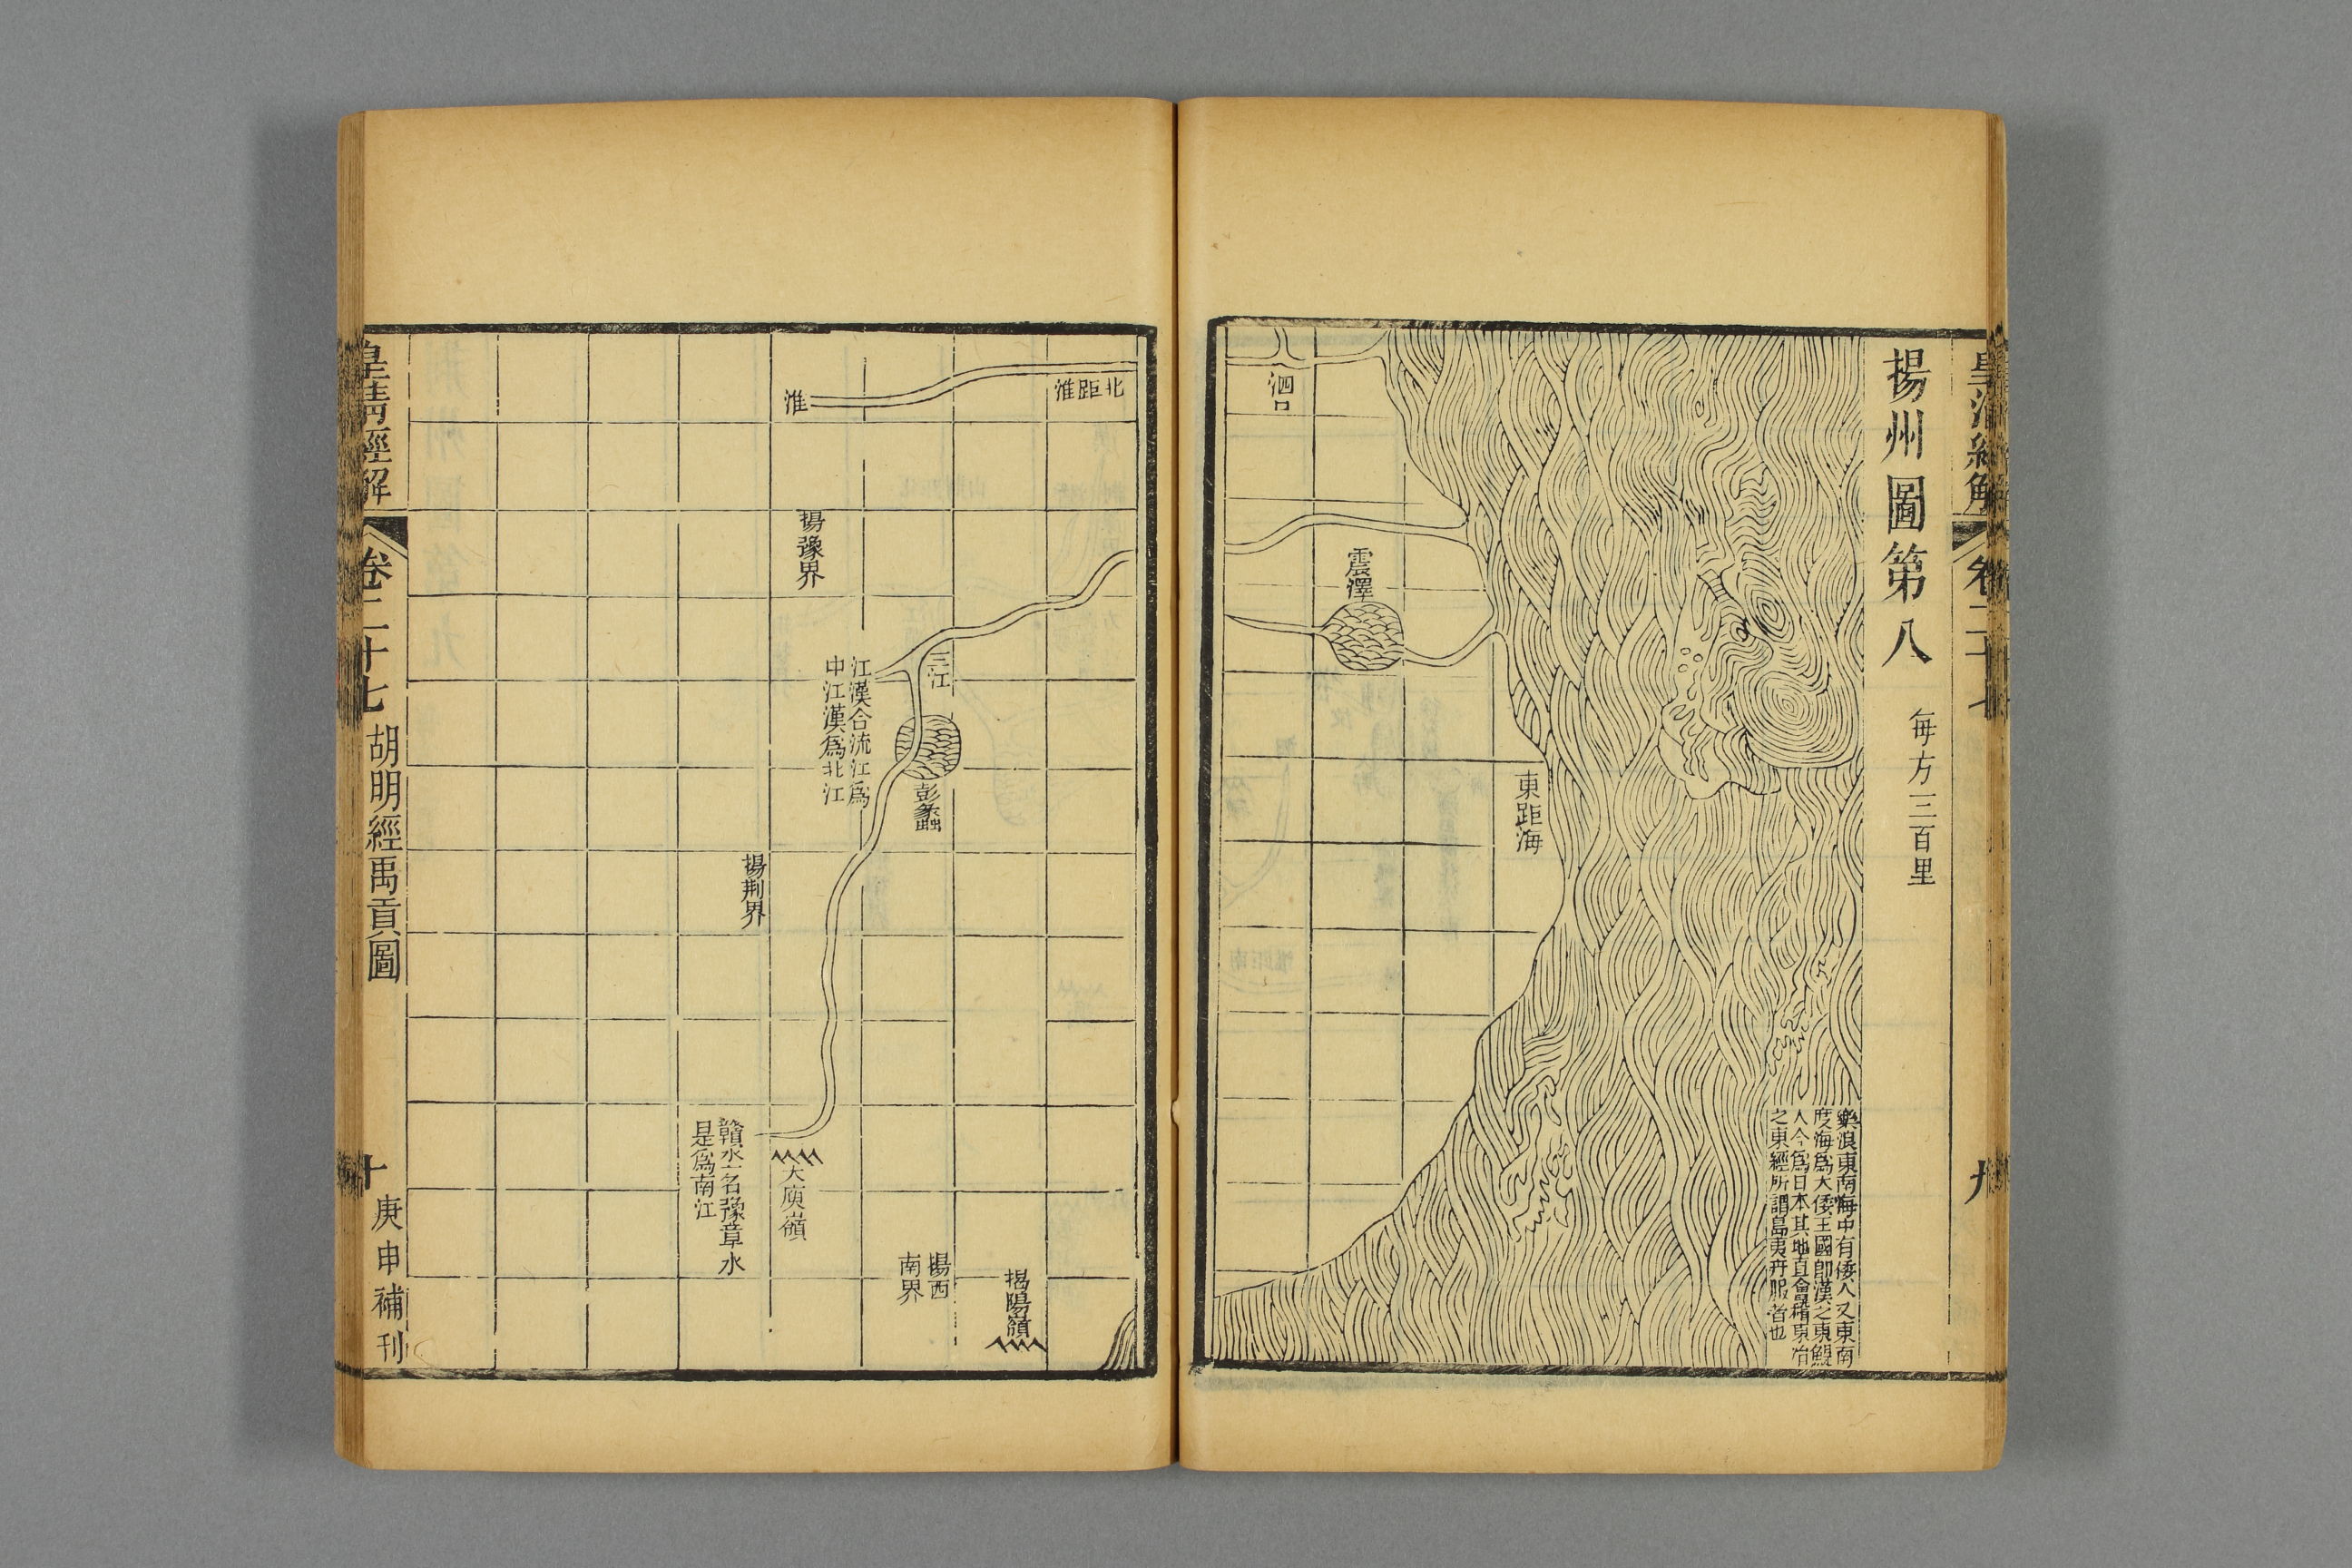 皇清經解
卷二十七
九
揚州圖第八
每方三百里
樂浪東南海中有倭人又東南
度海為大倭王國即漢之東鯷
人今為日本其地直會稽東冶
之東經所謂島夷卉服者也
東距海
震澤
泗口
北距淮
淮
揚豫界
三江
江漢合流江為
中江漢為北江
彭蠡
揚荆界
贛水一名豫章水
是為南江
大庾嶺
揚西
南界
揭陽嶺
皇清經解
卷二十七
胡明經禹貢圖
十
庚申補刊